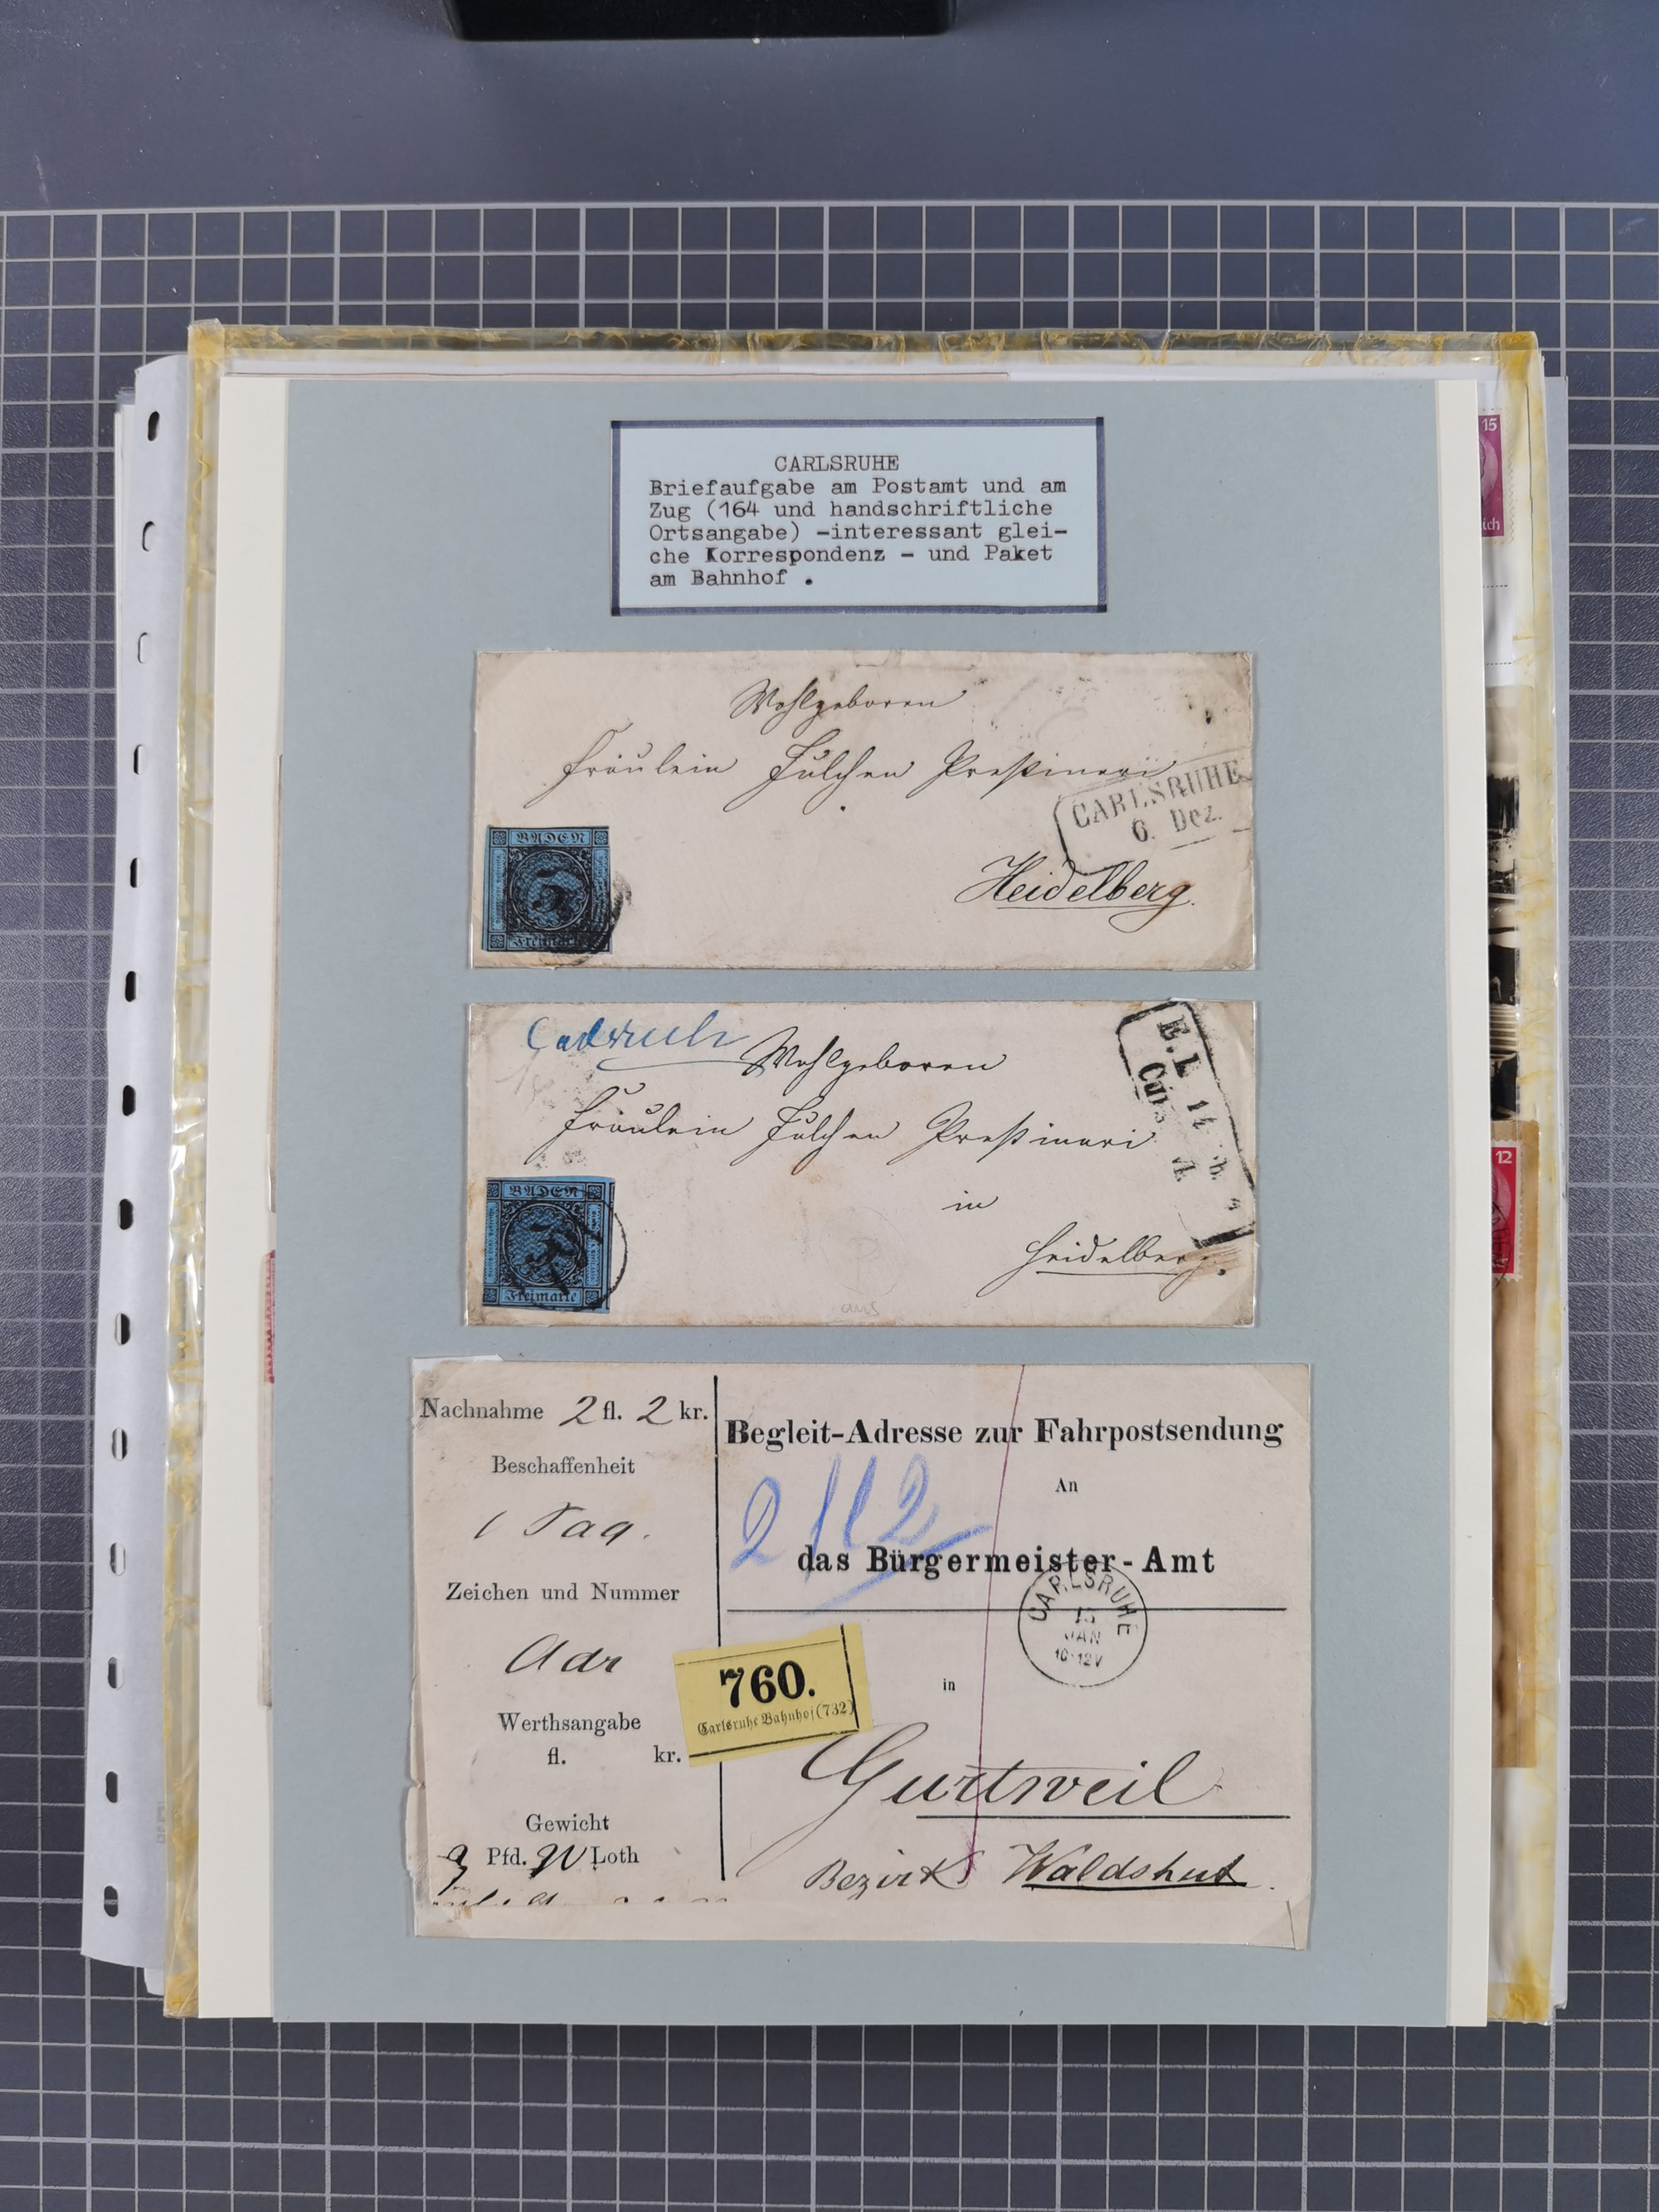 CARLSRUHE
Briefaufgabe am Postamt und am
Zug (164 und handschriftliche
Ortsangabe) -interessant glei-
che Korrespondenz - und Paket
am Bahnhof .
Wohlgeboren
Fräulein Julchen Prestinari
CARLSRUHE
6. Dez.
Heidelberg.
BADEN
Freimarke
Carlsruh
Wohlgeboren
Fräulein Julchen Prestinari
in
Heidelberg.
E. B.
14
BADEN
Freimarke
aus
Nachnahme 2 fl. 2 kr.
Beschaffenheit
1 Paq.
Zeichen und Nummer
Adr
Werthsangabe
fl. kr.
Gewicht
Pfd. Loth
Begleit-Adresse zur Fahrpostsendung
An
2 fl 2
das Bürgermeister-Amt
CARLSRUHE
15
JAN
10-12V
in
760.
Carlsruhe Bahnhof (732)
Gurtweil
Bezirks Waldshut.
15
ich
12